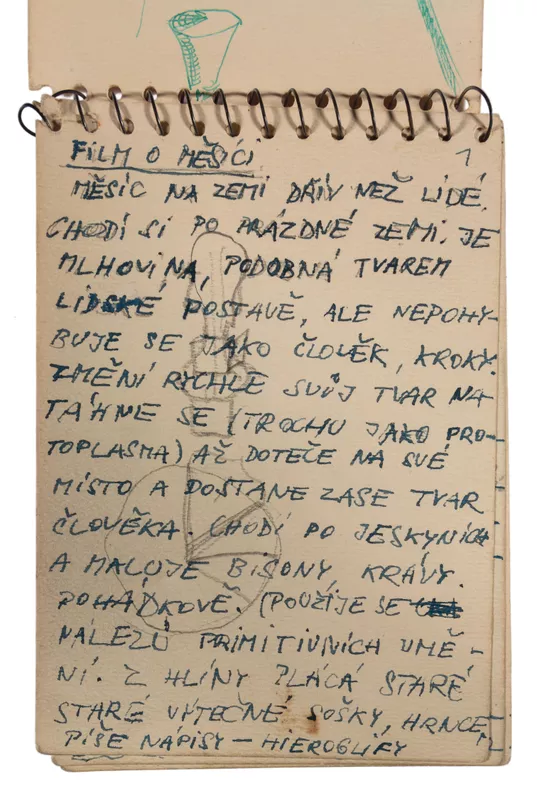 FILM O MĚSÍCI
1
MĚSÍC NA ZEMI DŘÍV NEŽ LIDÉ.
CHODÍ SI PO PRÁZDNÉ ZEMI. JE
MLHOVINA, PODOBNÁ TVAREM
LIDSKÉ POSTAVĚ, ALE NEPOHY-
BUJE SE JAKO ČLOVĚK, KROKY.
ZMĚNÍ RYCHLE SVŮJ TVAR NA-
TÁHNE SE (TROCHU JAKO PRO-
TOPLASMA) AŽ DOTEČE NA SVÉ
MÍSTO A DOSTANE ZASE TVAR
ČLOVĚKA. CHODÍ PO JESKYNÍCH
A MALUJE BISONY, KRÁVY.
POHÁDKOVĚ. (POUŽIJE SE
NÁLEZŮ PRIMITIVNÍCH UMĚ-
NÍ. Z HLÍNY PLÁCÁ STARÉ
STARÉ VÝTEČNÉ SOŠKY, HRNCE,
PÍŠE NÁPISY – HIEROGLIFY